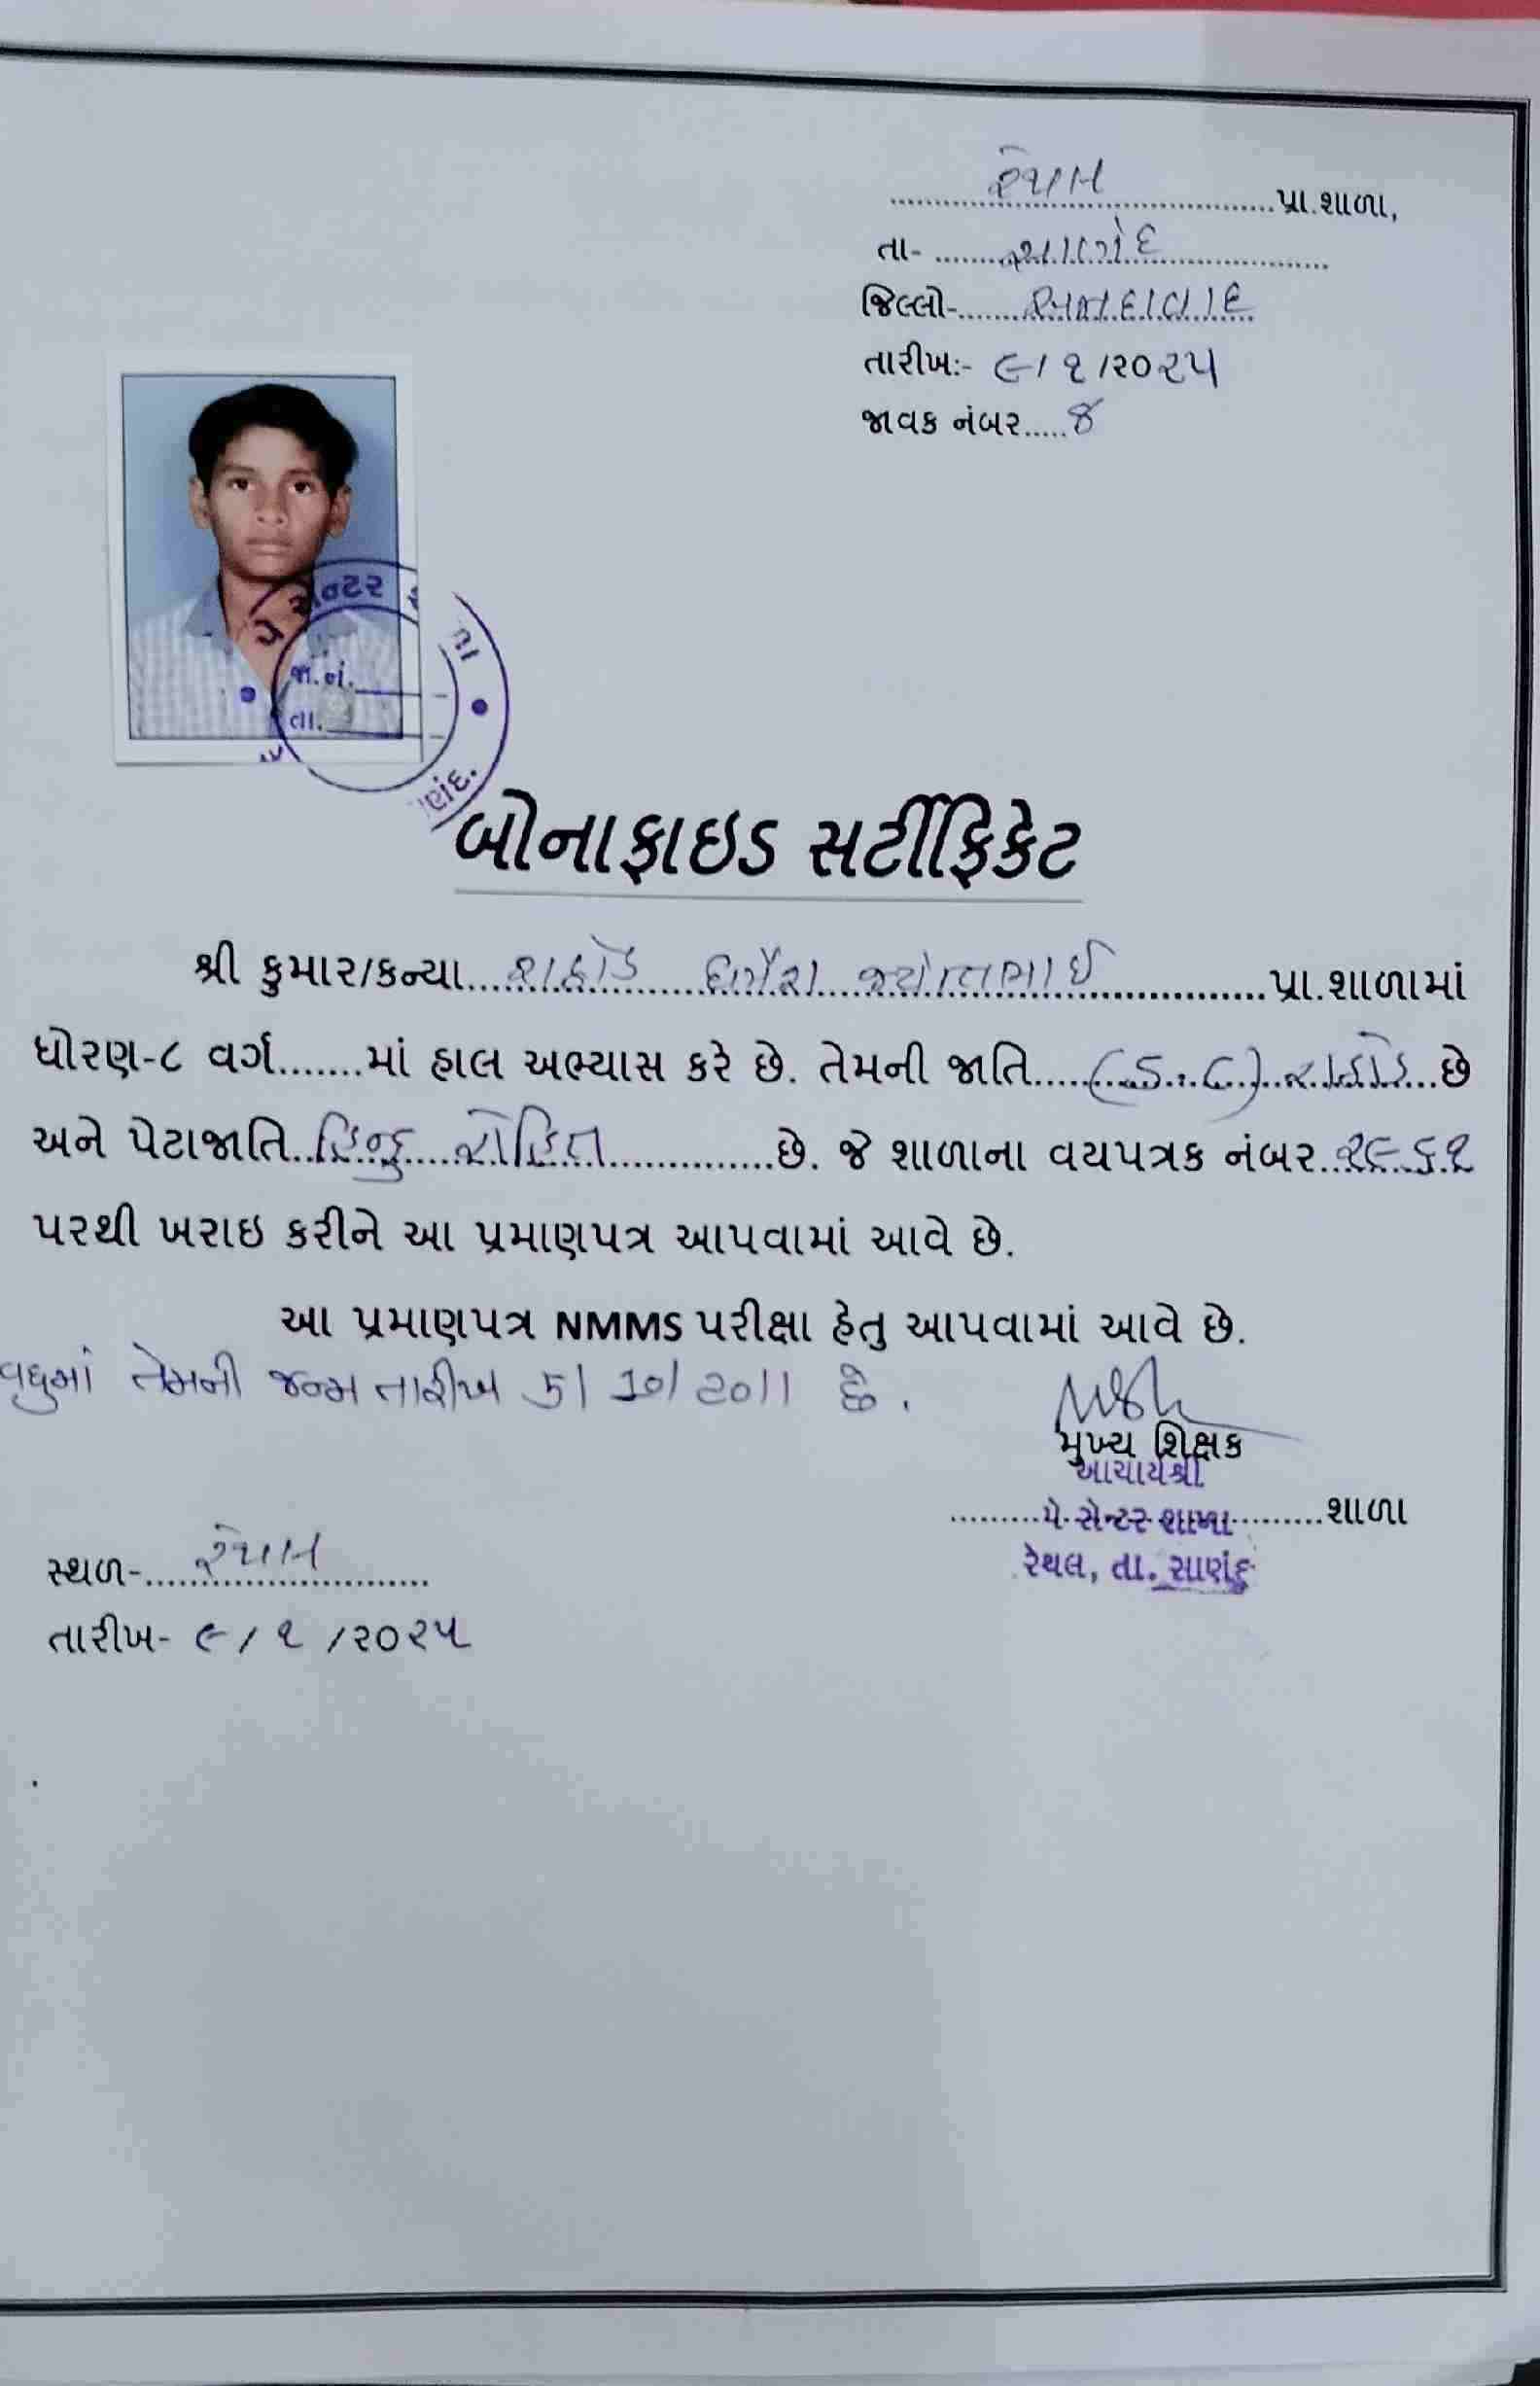 રેથલ પ્રા.શાળા,
તા- સાણંદ
જિલ્લો- અમદાવાદ
તારીખ:- ૯/ ૧ /૨૦૨૫
જાવક નંબર.....૪
સેન્ટર
જા.નં.
તા.
બોનાફાઇડ સર્ટીફિકેટ
શ્રી કુમાર/કન્યા... રાઠોડ ધર્મેશ જ્યોતભાઈ ...પ્રા.શાળામાં
ધોરણ-૮ વર્ગ.......માં હાલ અભ્યાસ કરે છે. તેમની જાતિ....(S.C) રાઠોડ...છે
અને પેટાજાતિ..હિન્દુ રોહિત...છે. જે શાળાના વયપત્રક નંબર..૨૯૬૧
પરથી ખરાઇ કરીને આ પ્રમાણપત્ર આપવામાં આવે છે.
આ પ્રમાણપત્ર NMMS પરીક્ષા હેતુ આપવામાં આવે છે.
વધુમાં તેમની જન્મ તારીખ 5/ 10/ 2011 છે.
મુખ્ય શિક્ષક
આચાર્યશ્રી
પે.સેન્ટર શાળા.........શાળા
રેથલ, તા. સાણંદ
સ્થળ- રેથલ
તારીખ- ૯ / ૧ /૨૦૨૫